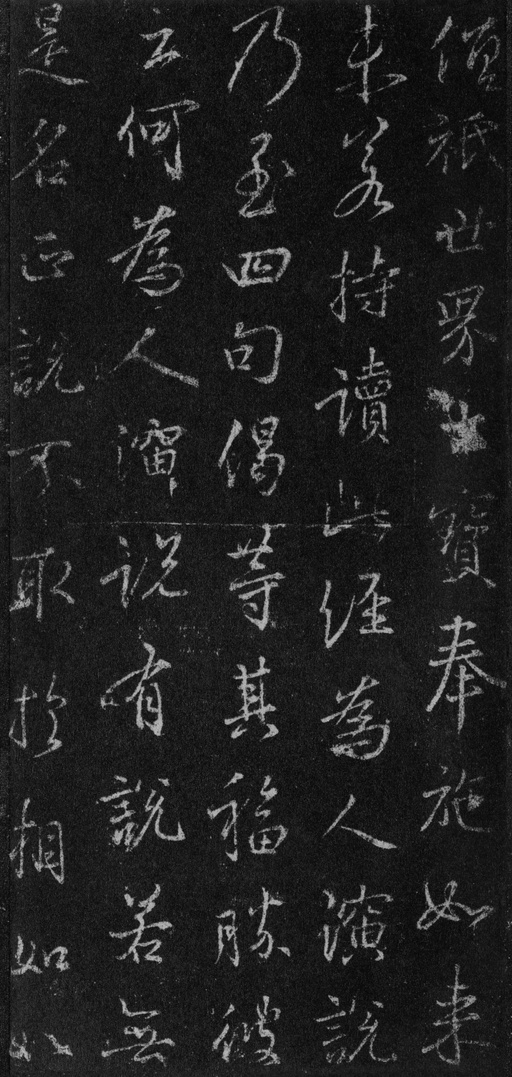 僧祇世界七寶奉施如来
未若持讀此經為人演說
乃至四句偈等其福勝彼
云何為人演說有說若無
是名正說不取於相如如